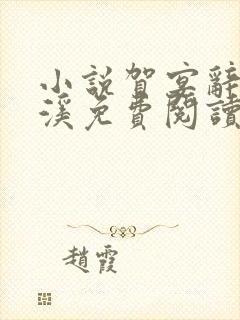 小說賀宴辭
溪免費閱讀
趙霞